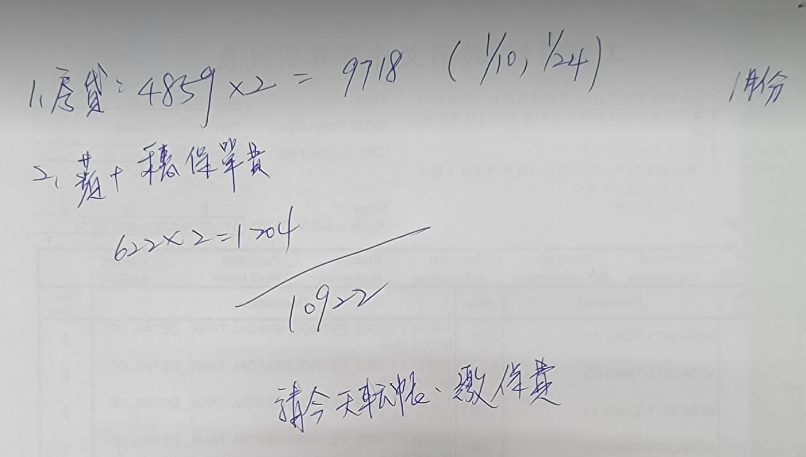 1、房貸：4859×2 = 9718 (1/10, 1/24)
1月份
2、黃+穗保單費
622×2=1204
10922
請今天転帳、繳保費